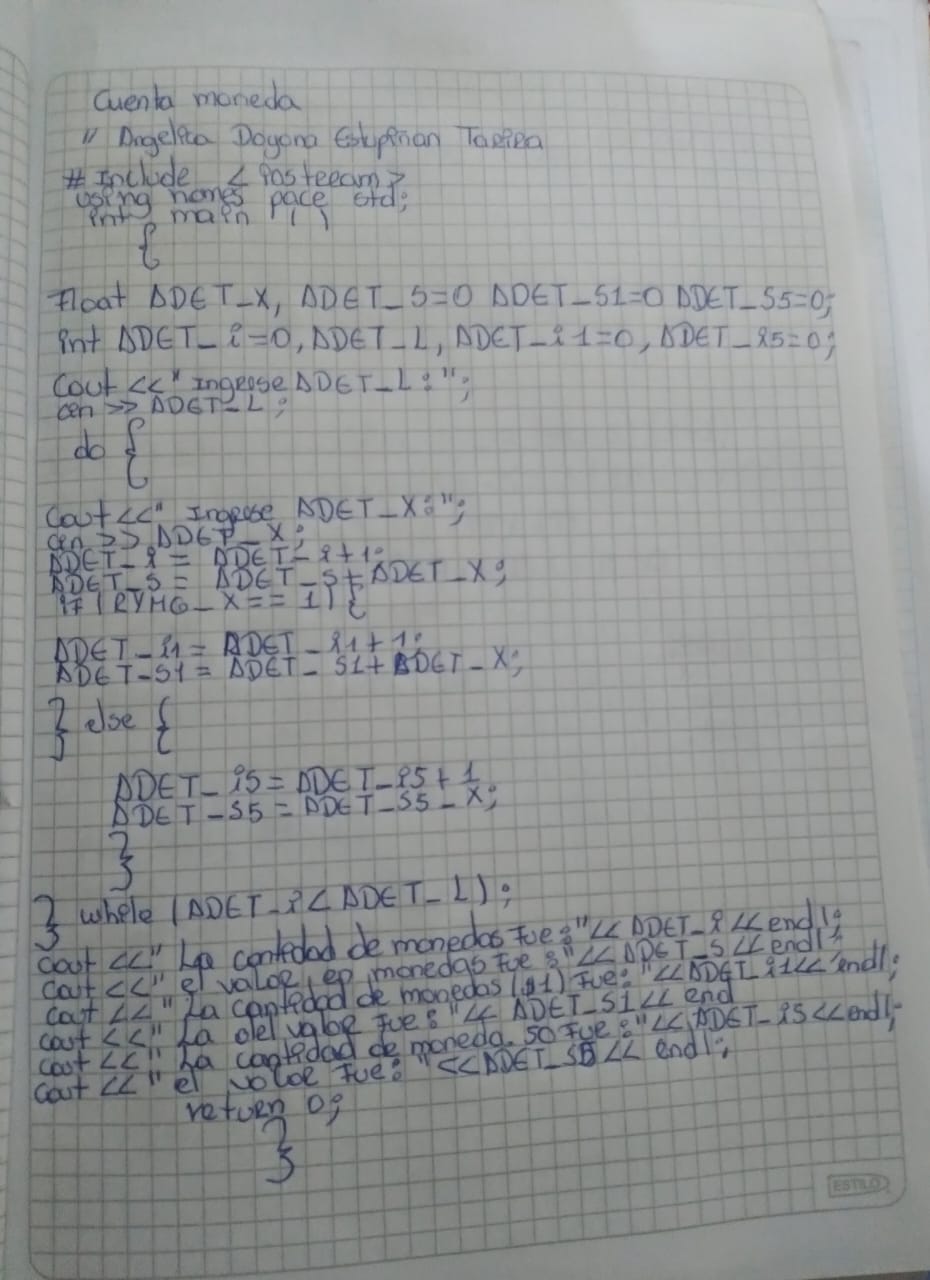 Cuenta moneda
// Angelica Dayana Estupiñan Tarira
# Include < iostream>
using names pace std;
int main ( )
{
Float ADET_X, ADET_S=0 ADET_S1=0 ADET_S5=0;
int ADET_i=0, ADET_L, ADET_i1=0, ADET_i5=0;
Cout <<" Ingrese ADET_L:";
cin >> ADET_L;
do {
Cout <<" Ingrese ADET_X:";
cin >> ADET_X;
ADET_i = ADET_i+1;
ADET_S = ADET_S+ADET_X;
if (RYMG_X == 1) {
ADET_i1 = ADET_i1+1;
ADET_S1 = ADET_S1+ADET_X;
} else {
ADET_i5 = ADET_i5+1
ADET_S5 = ADET_S5_X;
}
} while (ADET_i< ADET_L);
cout <<" La cantidad de monedas fue:"<< ADET_i << endl;
cout <<" el valor en monedas fue:"<< ADET_S << endl;
cout <<" La cantidad de monedas ($1) fue: "<<ADET_i1<< endl;
cout <<" La del valor fue:"<< ADET_S1<< end
cout <<" La cantidad de moneda 50 fue:"<<ADET_i5<<endl;
cout <<" el valor fue: "<<ADET_S5<< endl;
return 0;
}
ESTILO